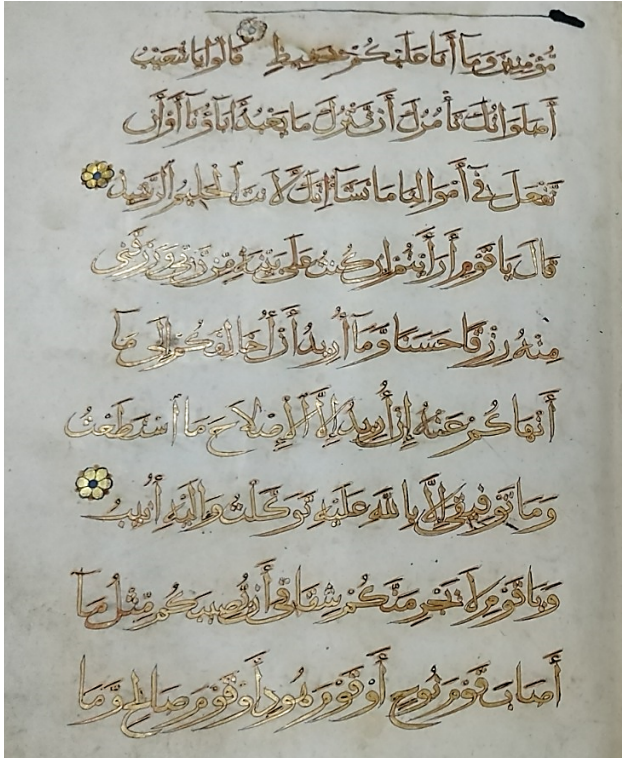 مُؤْمِنِينَ وَمَآ أَنَا عَلَيْكُمْ بِحَفِيظٍ قَالُوا يَا شُعَيْبُ
أَصَلَوَاتُكَ تَأْمُرُكَ أَنْ نَّتْرُكَ مَا يَعْبُدُ آبَاؤُنَآ أَوْ أَن
نَّفْعَلَ فِىٓ أَمْوَالِنَا مَا نَشَآءُ إِنَّكَ لَأَنتَ ٱلْحَلِيمُ ٱلرَّشِيدُ
قَالَ يَا قَوْمِ أَرَأَيْتُمْ إِن كُنتُ عَلَى بَيِّنَةٍ مِّن رَّبِّى وَرَزَقَنِى
مِنْهُ رِزْقًا حَسَنًا وَمَآ أُرِيدُ أَنْ أُخَالِفَكُمْ إِلَى مَآ
أَنْهَاكُمْ عَنْهُ إِنْ أُرِيدُ إِلَّا ٱلْإِصْلَاحَ مَا ٱسْتَطَعْتُ
وَمَا تَوْفِيقِى إِلَّا بِاللَّهِ عَلَيْهِ تَوَكَّلْتُ وَإِلَيْهِ أُنِيبُ
وَيَا قَوْمِ لَا يَجْرِمَنَّكُمْ شِقَاقِى أَن يُصِيبَكُم مِّثْلُ مَآ
أَصَابَ قَوْمَ نُوحٍ أَوْ قَوْمَ هُودٍ أَوْ قَوْمَ صَالِحٍ وَّمَا